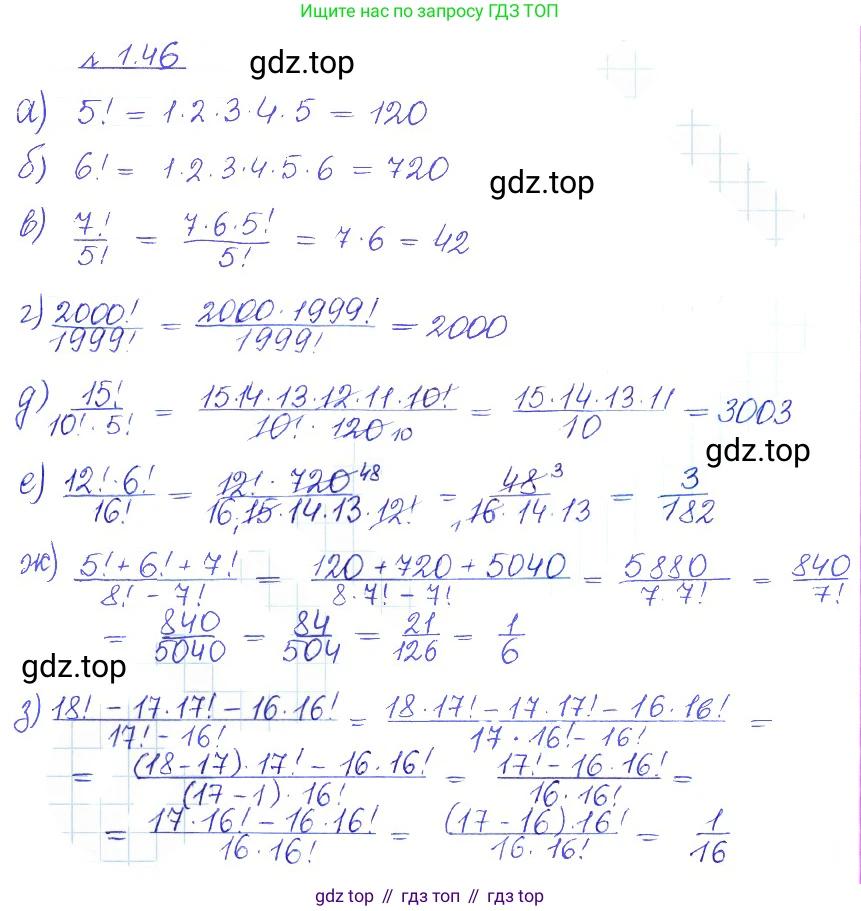 Ищите нас по запросу ГДЗ ТОП
№ 1.46 gdz.top
а) 5! = 1·2·3·4·5 = 120
б) 6! = 1·2·3·4·5·6 = 720
gdz.top
в) 7!/5! = 7·6·5!/5! = 7·6 = 42
г) 2000!/1999! = 2000·1999!/1999! = 2000
д) 15!/10!·5! = 15·14·13·12·11·10!/10!·120 10 = 15·14·13·11/10 = 3003
gdz.top
е) 12!·6!/16! = 12!·720 48/16·15·14·13·12! = 48 3/16·14·13 = 3/182
ж) 5!+6!+7!/8!-7! = 120+720+5040/8·7!-7! = 5880/7·7! = 840/7!
= 840/5040 = 84/504 = 21/126 = 1/6
gdz.top
з) 18!-17·17!-16·16!/17!-16! = 18·17!-17·17!-16·16!/17·16!-16! =
= (18-17)·17!-16·16!/(17-1)·16! = 17!-16·16!/16·16! =
= 17·16!-16·16!/16·16! = (17-16)·16!/16·16! = 1/16
gdz top // гдз топ // gdz top